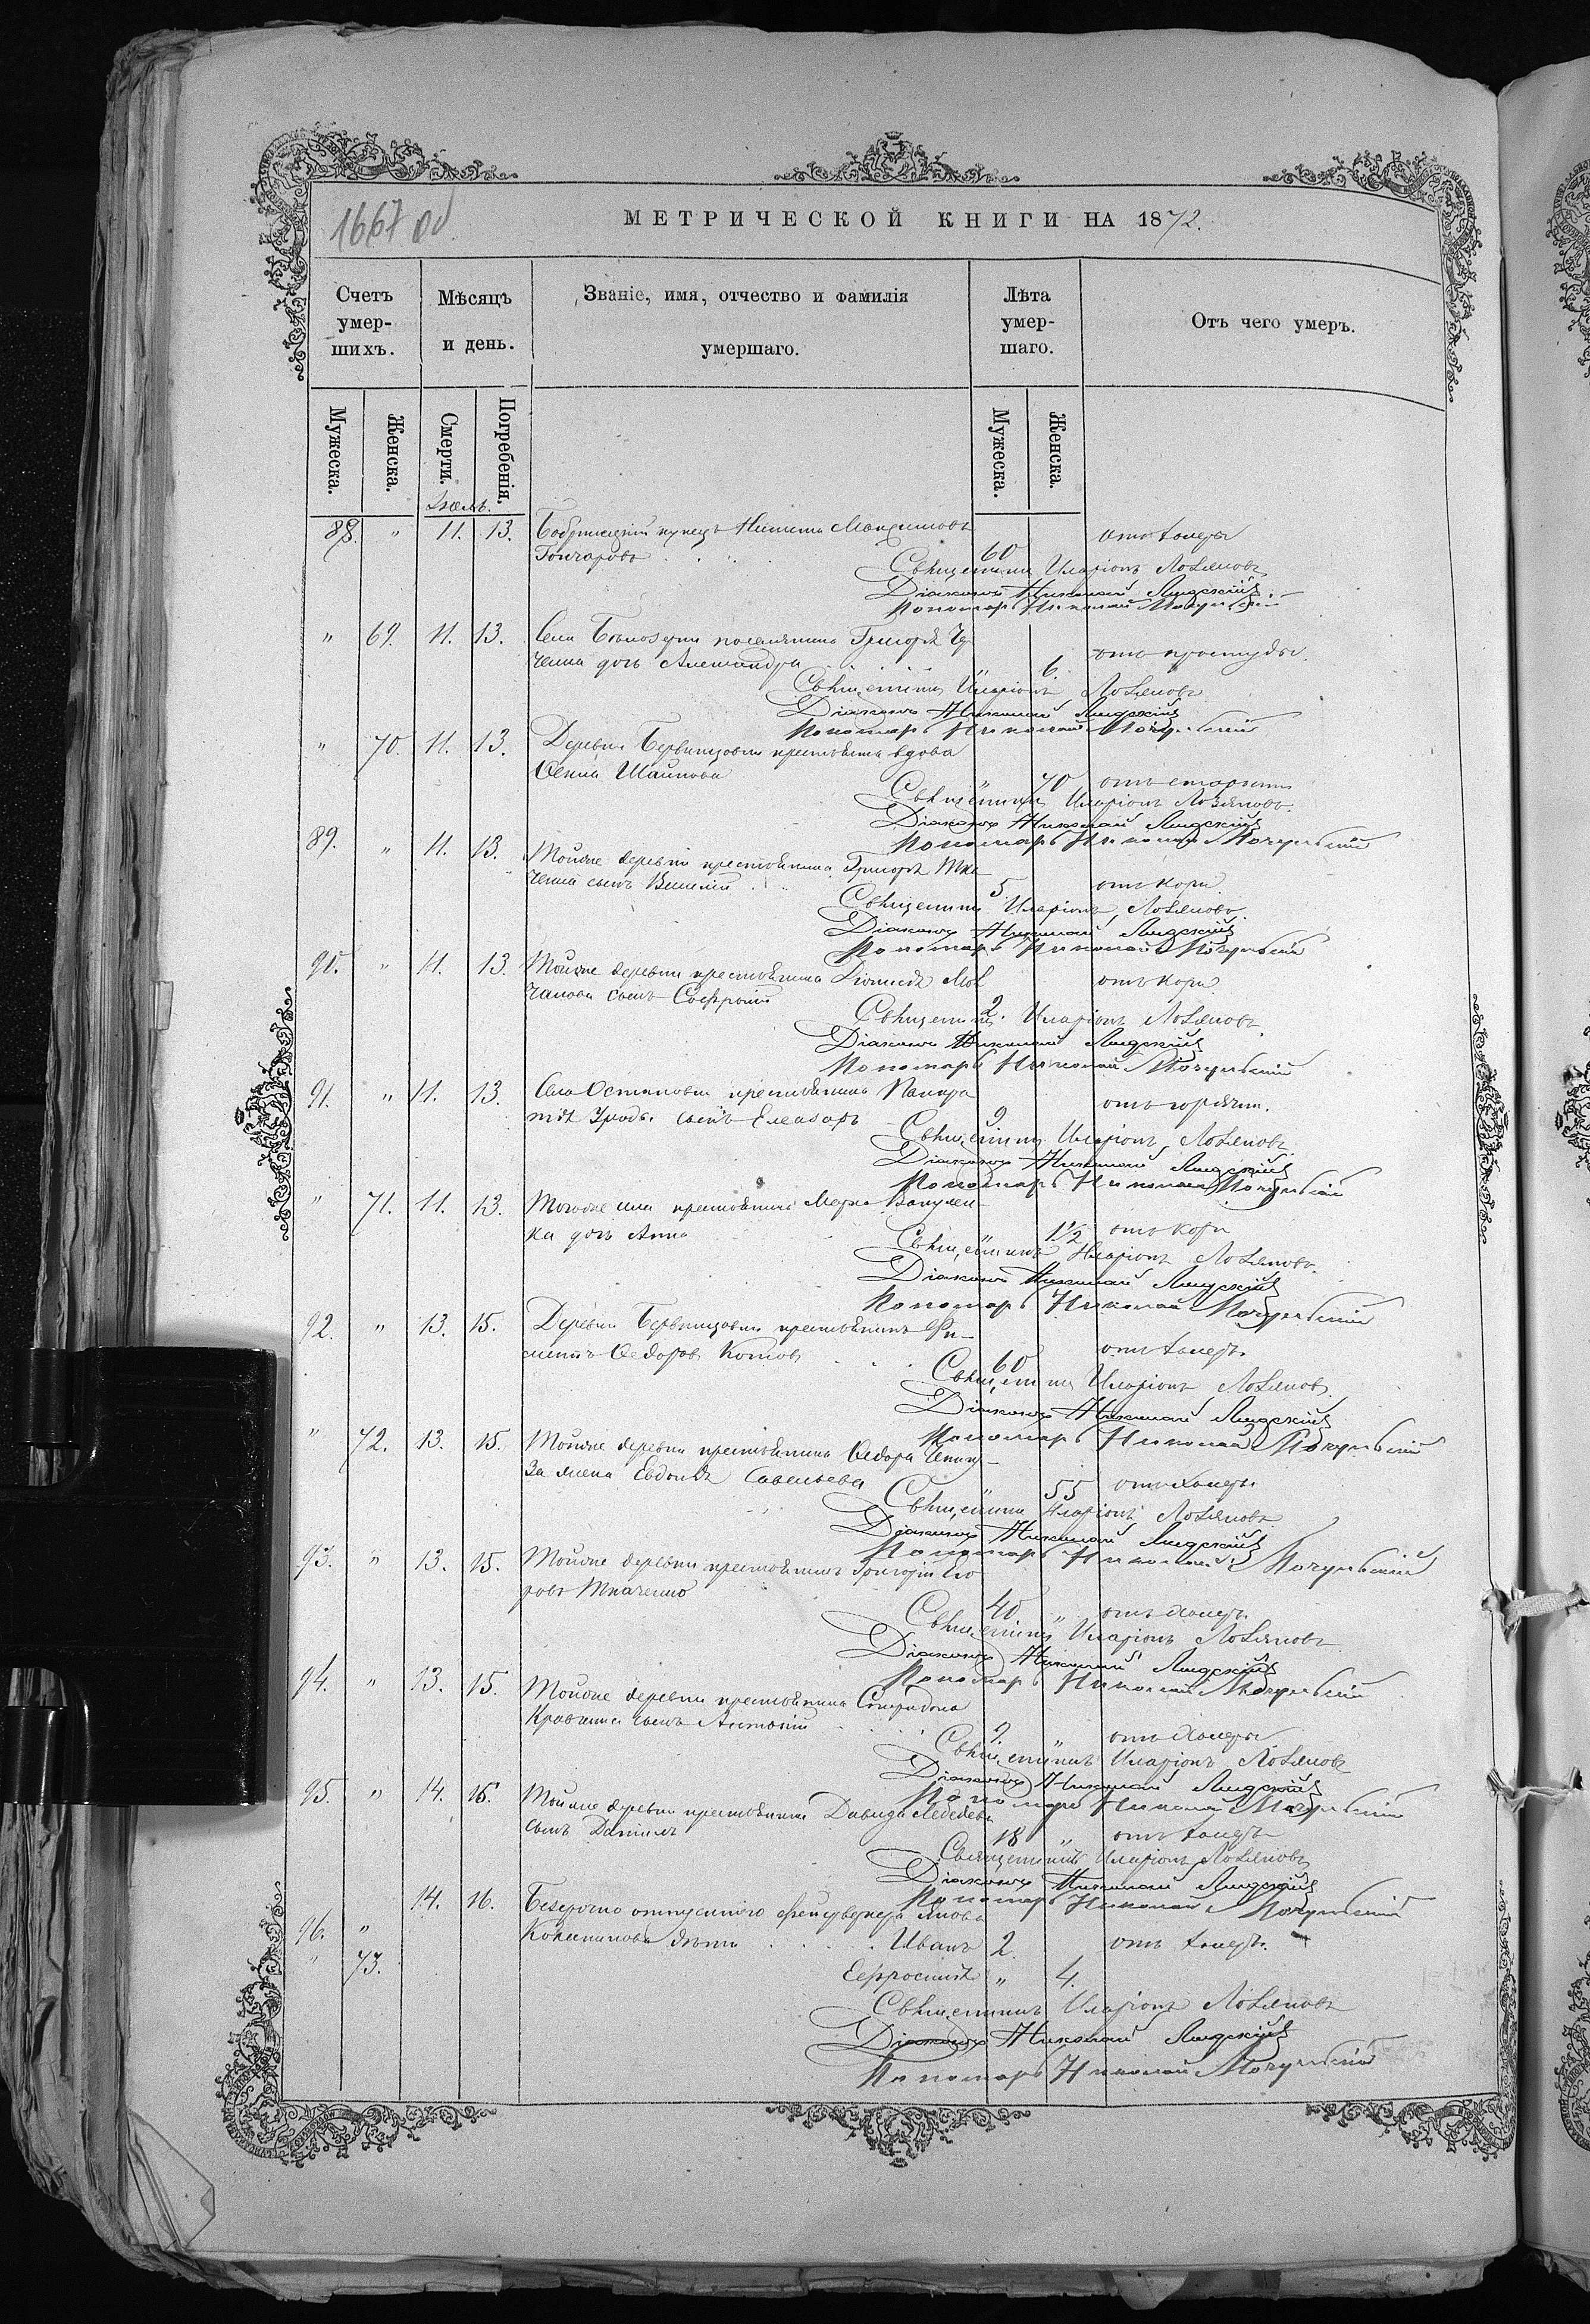 1667 об
МЕТРИЧЕСКОЙ КНИГИ НА 1872.
Счетъ умер-шихъ.
Мѣсяцъ и день.
Званіе, имя, отчество и фамилія умершаго.
Лѣта умер-шаго.
Отъ чего умеръ.
Мужеска. Женска. Смерти. Погребенія. Мужеска. Женска.
88. " 11. 13. купецъ Никита Максимовъ
Гончаровъ 60 отъ холеры
Священникъ Иларіонъ Лозановъ
Діаконъ Николай Лидскій
Пономарь Николай Мочульскій
" 69. 11. 13. Села Бѣлозерки поселянина Григорія
дочь Александра " 6. отъ простуды.
Священникъ Иларіонъ Лозановъ
Діаконъ Николай Лидскій
Пономарь Николай Мочульскій
" 70. 11. 13. Деревни крестьянка вдова
" 70 отъ старости
Священникъ Иларіонъ Лозановъ.
Діаконъ Николай Лидскій
Пономарь Николай Мочульскій
89. " 11. 13. Тойже деревни крестьянина Григорія Тка-
ченка сынъ Василій 5 отъ кори.
Священникъ Иларіонъ Лозановъ.
Діаконъ Николай Лидскій
Пономарь Николай Мочульскій
90. " 11. 13. Тойже деревни крестьянина
сынъ Софроній 2. отъ кори
Священникъ Иларіонъ Лозановъ.
Діаконъ Николай Лидскій
Пономарь Николай Мочульскій
91. " 11. 13. Села крестьянина
сынъ Елеазаръ 9 отъ горячк.
Священникъ Иларіонъ Лозановъ.
Діаконъ Николай Лидскій
Пономарь Николай Мочульскій
" 71. 11. 13. Тогоже села крестьянина Марка Вакулен-
ка дочь Анна 1½ отъ кори
Священникъ Иларіонъ Лозановъ.
Діаконъ Николай Лидскій
Пономарь Николай Мочульскій
92. " 13. 15. Деревни крестьянинъ Фи-
Ѳедоровъ Котовъ 60 отъ холеры.
Священникъ Иларіонъ Лозановъ.
Діаконъ Николай Лидскій
Пономарь Николай Мочульскій
" 72. 13. 15. Тойже деревни крестьянина Ѳедора
жена Евдокія Савельева " 55 отъ холеры
Священникъ Иларіонъ Лозановъ
Діаконъ Николай Лидскій
Пономарь Николай Мочульскій
93. " 13. 15. Тойже деревни крестьянинъ Григорій Его
ровъ Ткаченко 40. " отъ холеры.
Священникъ Иларіонъ Лозановъ
Діаконъ Николай Лидскій
Пономарь Николай Мочульскій
94. " 13. 15. Тойже деревни крестьянина Спиридона
сынъ Антоній 9. " отъ холеры
Священникъ Иларіонъ Лозановъ
Діаконъ Николай Лидскій
Пономарь Николай Мочульскій
95. " 14. 16. Тойже деревни крестьянина Давида Лебедева
сынъ Даніилъ 18 " отъ холеры
Священникъ Иларіонъ Лозановъ
Діаконъ Николай Лидскій
Пономарь Николай Мочульскій
14. 16. Безсрочно отпускного фейерверкера Якова
96. " дѣти Иванъ 2. отъ холеры.
" 73. Евфросинія " 4.
Священникъ Иларіонъ Лозановъ
Діаконъ Николай Лидскій
Пономарь Николай Мочульскій